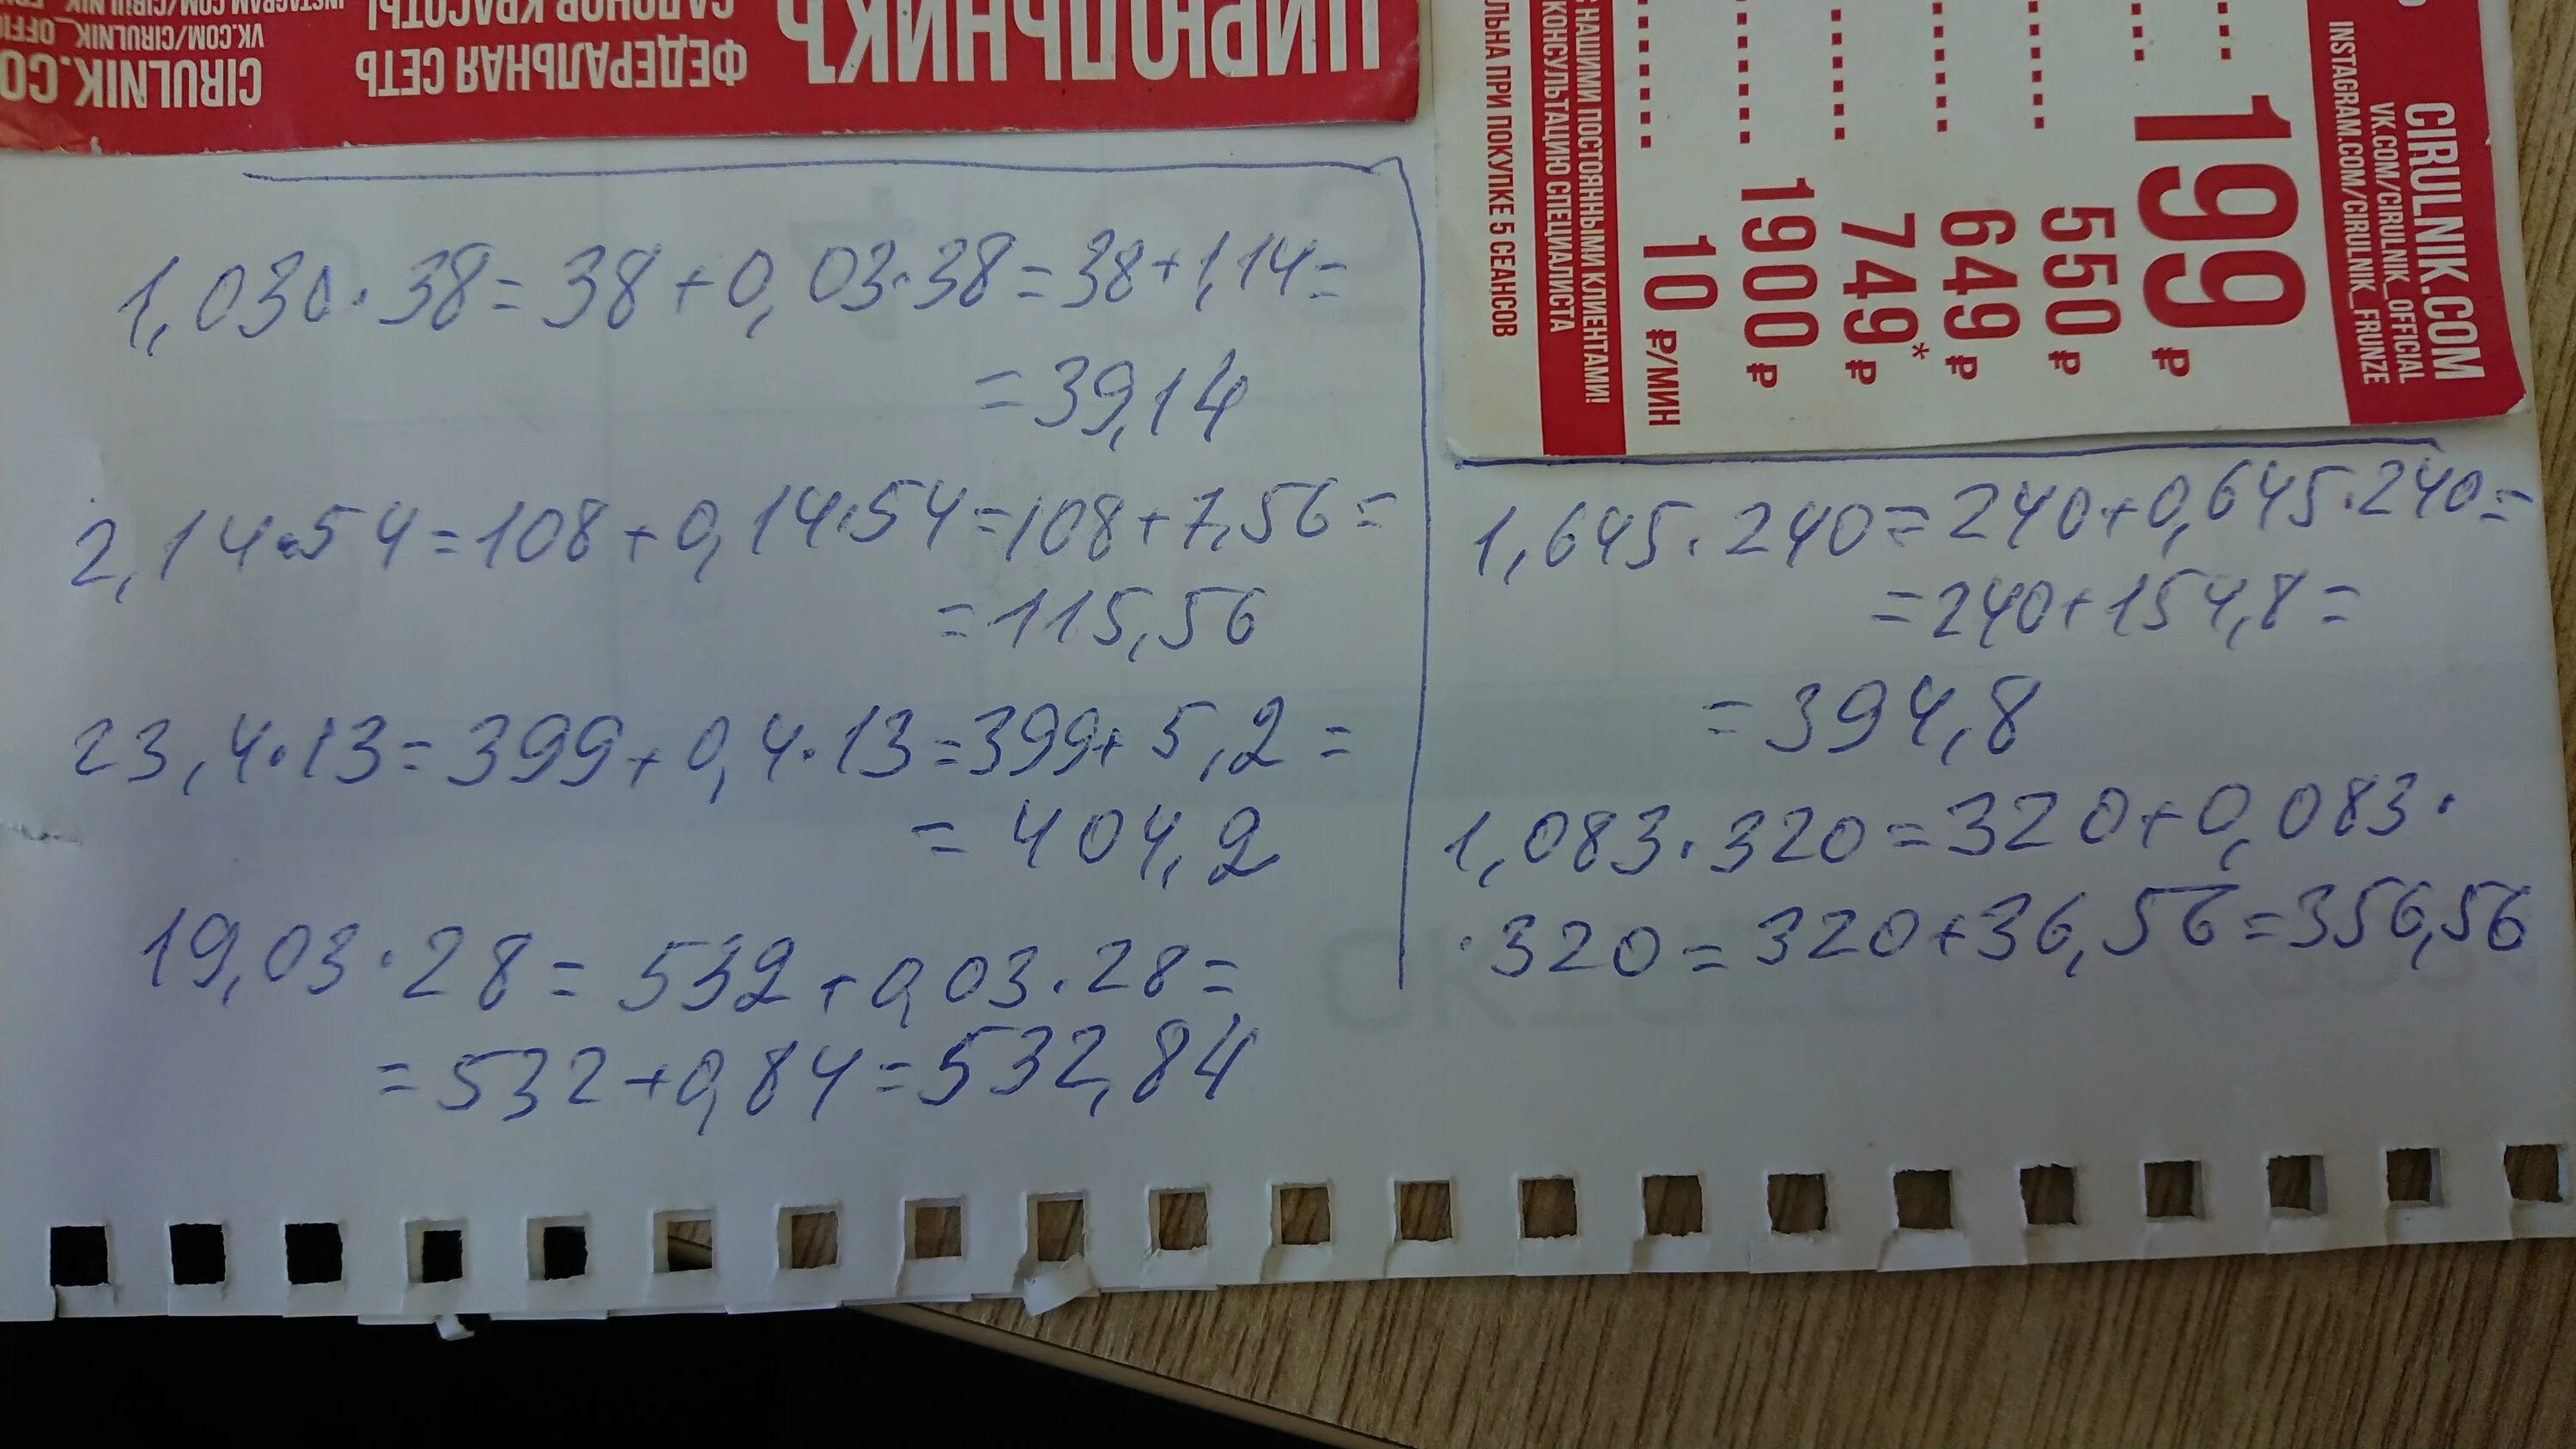 ЦИРЮЛЬНИКЪ
ФЕДЕРАЛЬНАЯ СЕТЬ
САЛОНОВ КРАСОТЫ
CIRULNIK.CO
VK.COM/CIRULNIK_OFFIC
INSTAGRAM.COM/CIRULNIK
1,030·38=38+0,03·38=38+1,14=
=39,14
2,14·54=108+0,14·54=108+7,56=
=115,56
23,4·13=399+0,4·13=399+5,2=
=404,2
19,03·28=532+0,03·28=
=532+0,84=532,84
CIRULNIK.COM
VK.COM/CIRULNIK_OFFICIAL
INSTAGRAM.COM/CIRULNIK_FRUNZE
199 ₽
550 ₽
649 ₽
749* ₽
1900 ₽
10 ₽/МИН
НАШИМИ ПОСТОЯННЫМИ КЛИЕНТАМИ!
КОНСУЛЬТАЦИЮ СПЕЦИАЛИСТА
ЛЬНА ПРИ ПОКУПКЕ 5 СЕАНСОВ
1,645·240=240+0,645·240=
=240+154,8=
=394,8
1,083·320=320+0,083·
·320=320+36,56=356,56